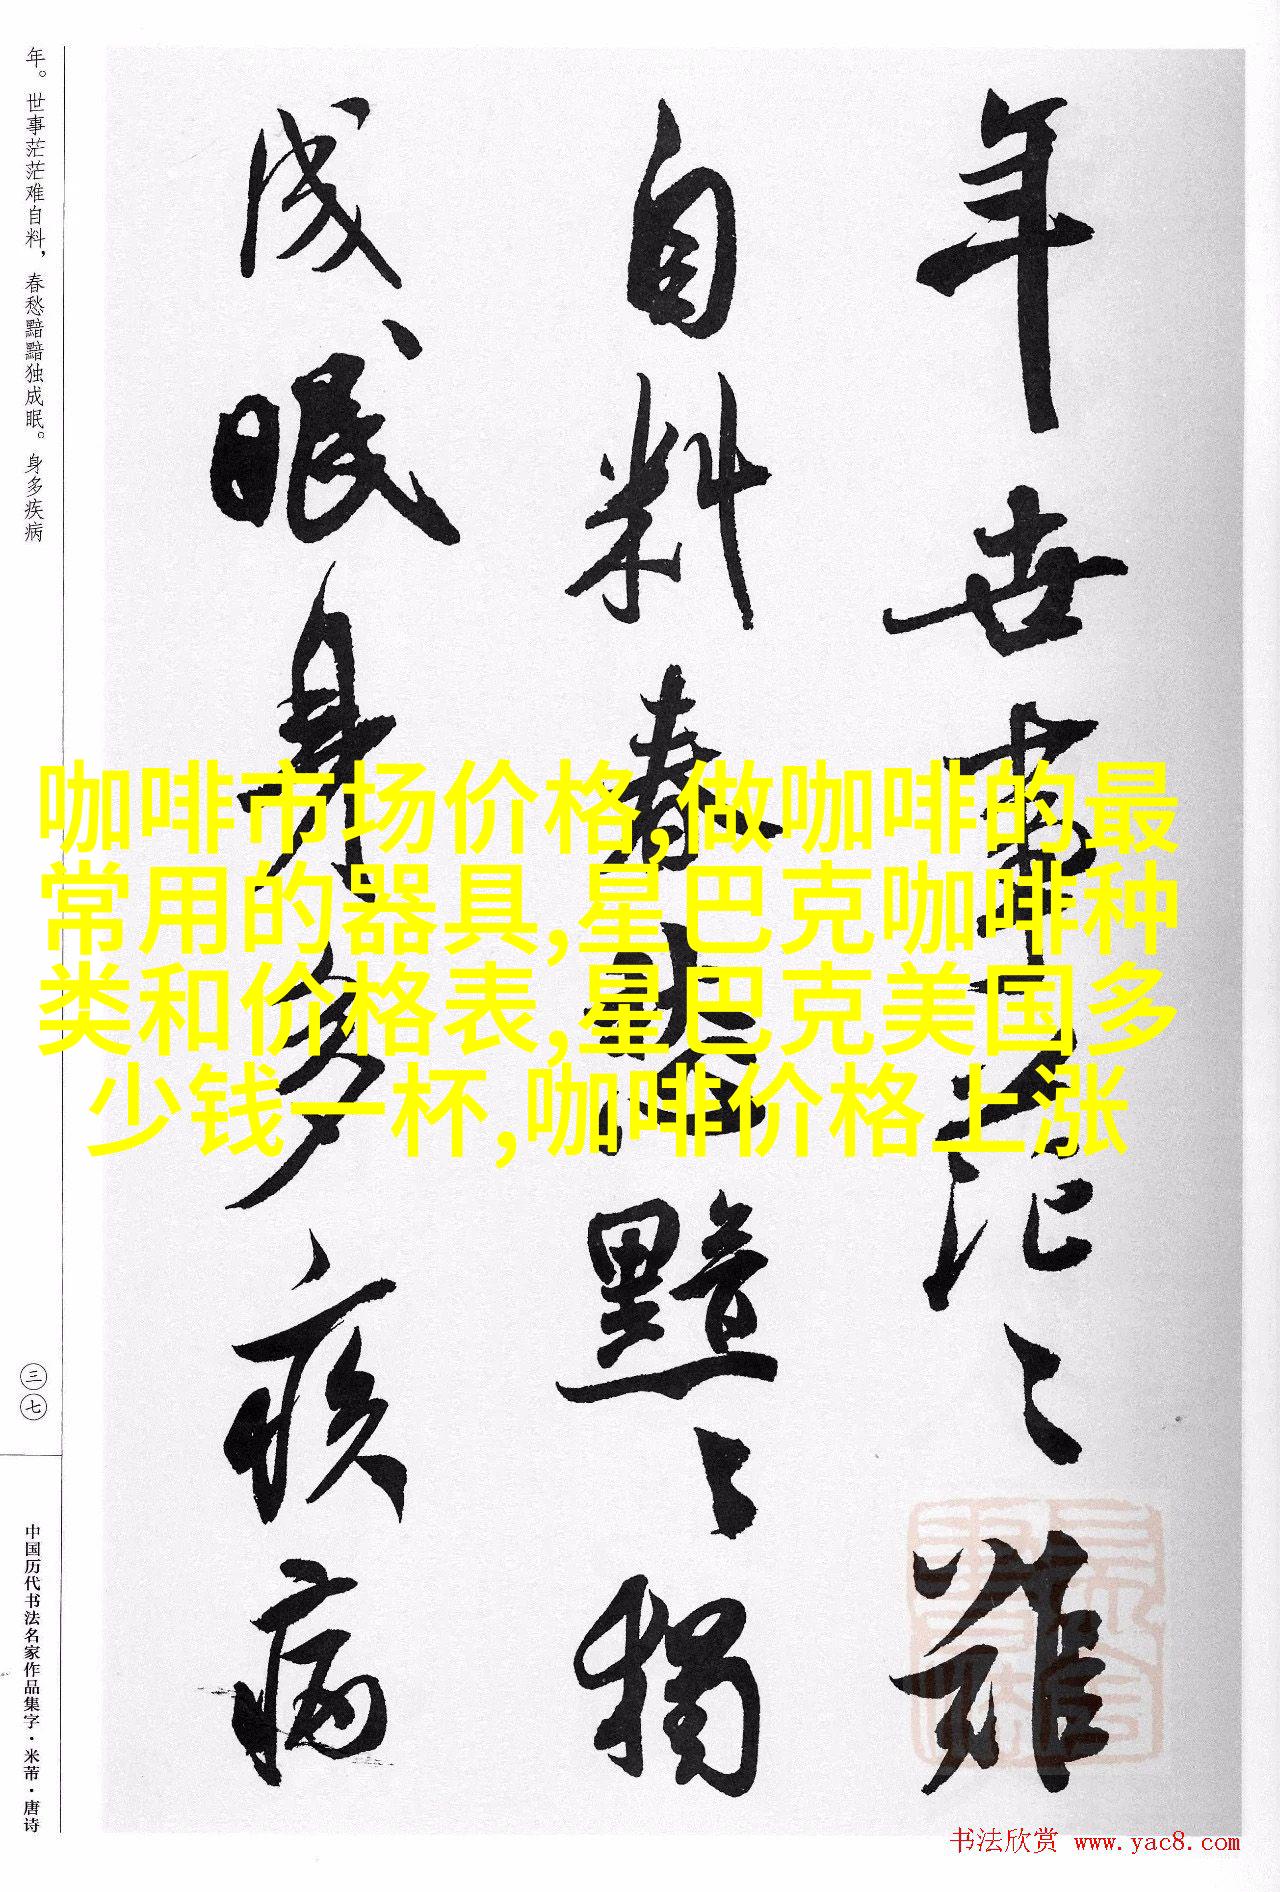 年。世事茫茫难自料，春愁黯黯独成眠。身多疾病
年世事茫〻難
自料春愁黯〻獨
成眠身多疾病
咖啡市场价格,做咖啡的最
常用的器具,星巴克咖啡种
类和价格表,星巴克美国多
少钱一杯,咖啡价格上涨
三七
中国历代书法名家作品集字·米芾·唐诗
书法欣赏 www.yac8.com